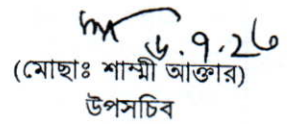 ৬.৭.২৬
(মোছাঃ শাম্মী আক্তার)
উপসচিব